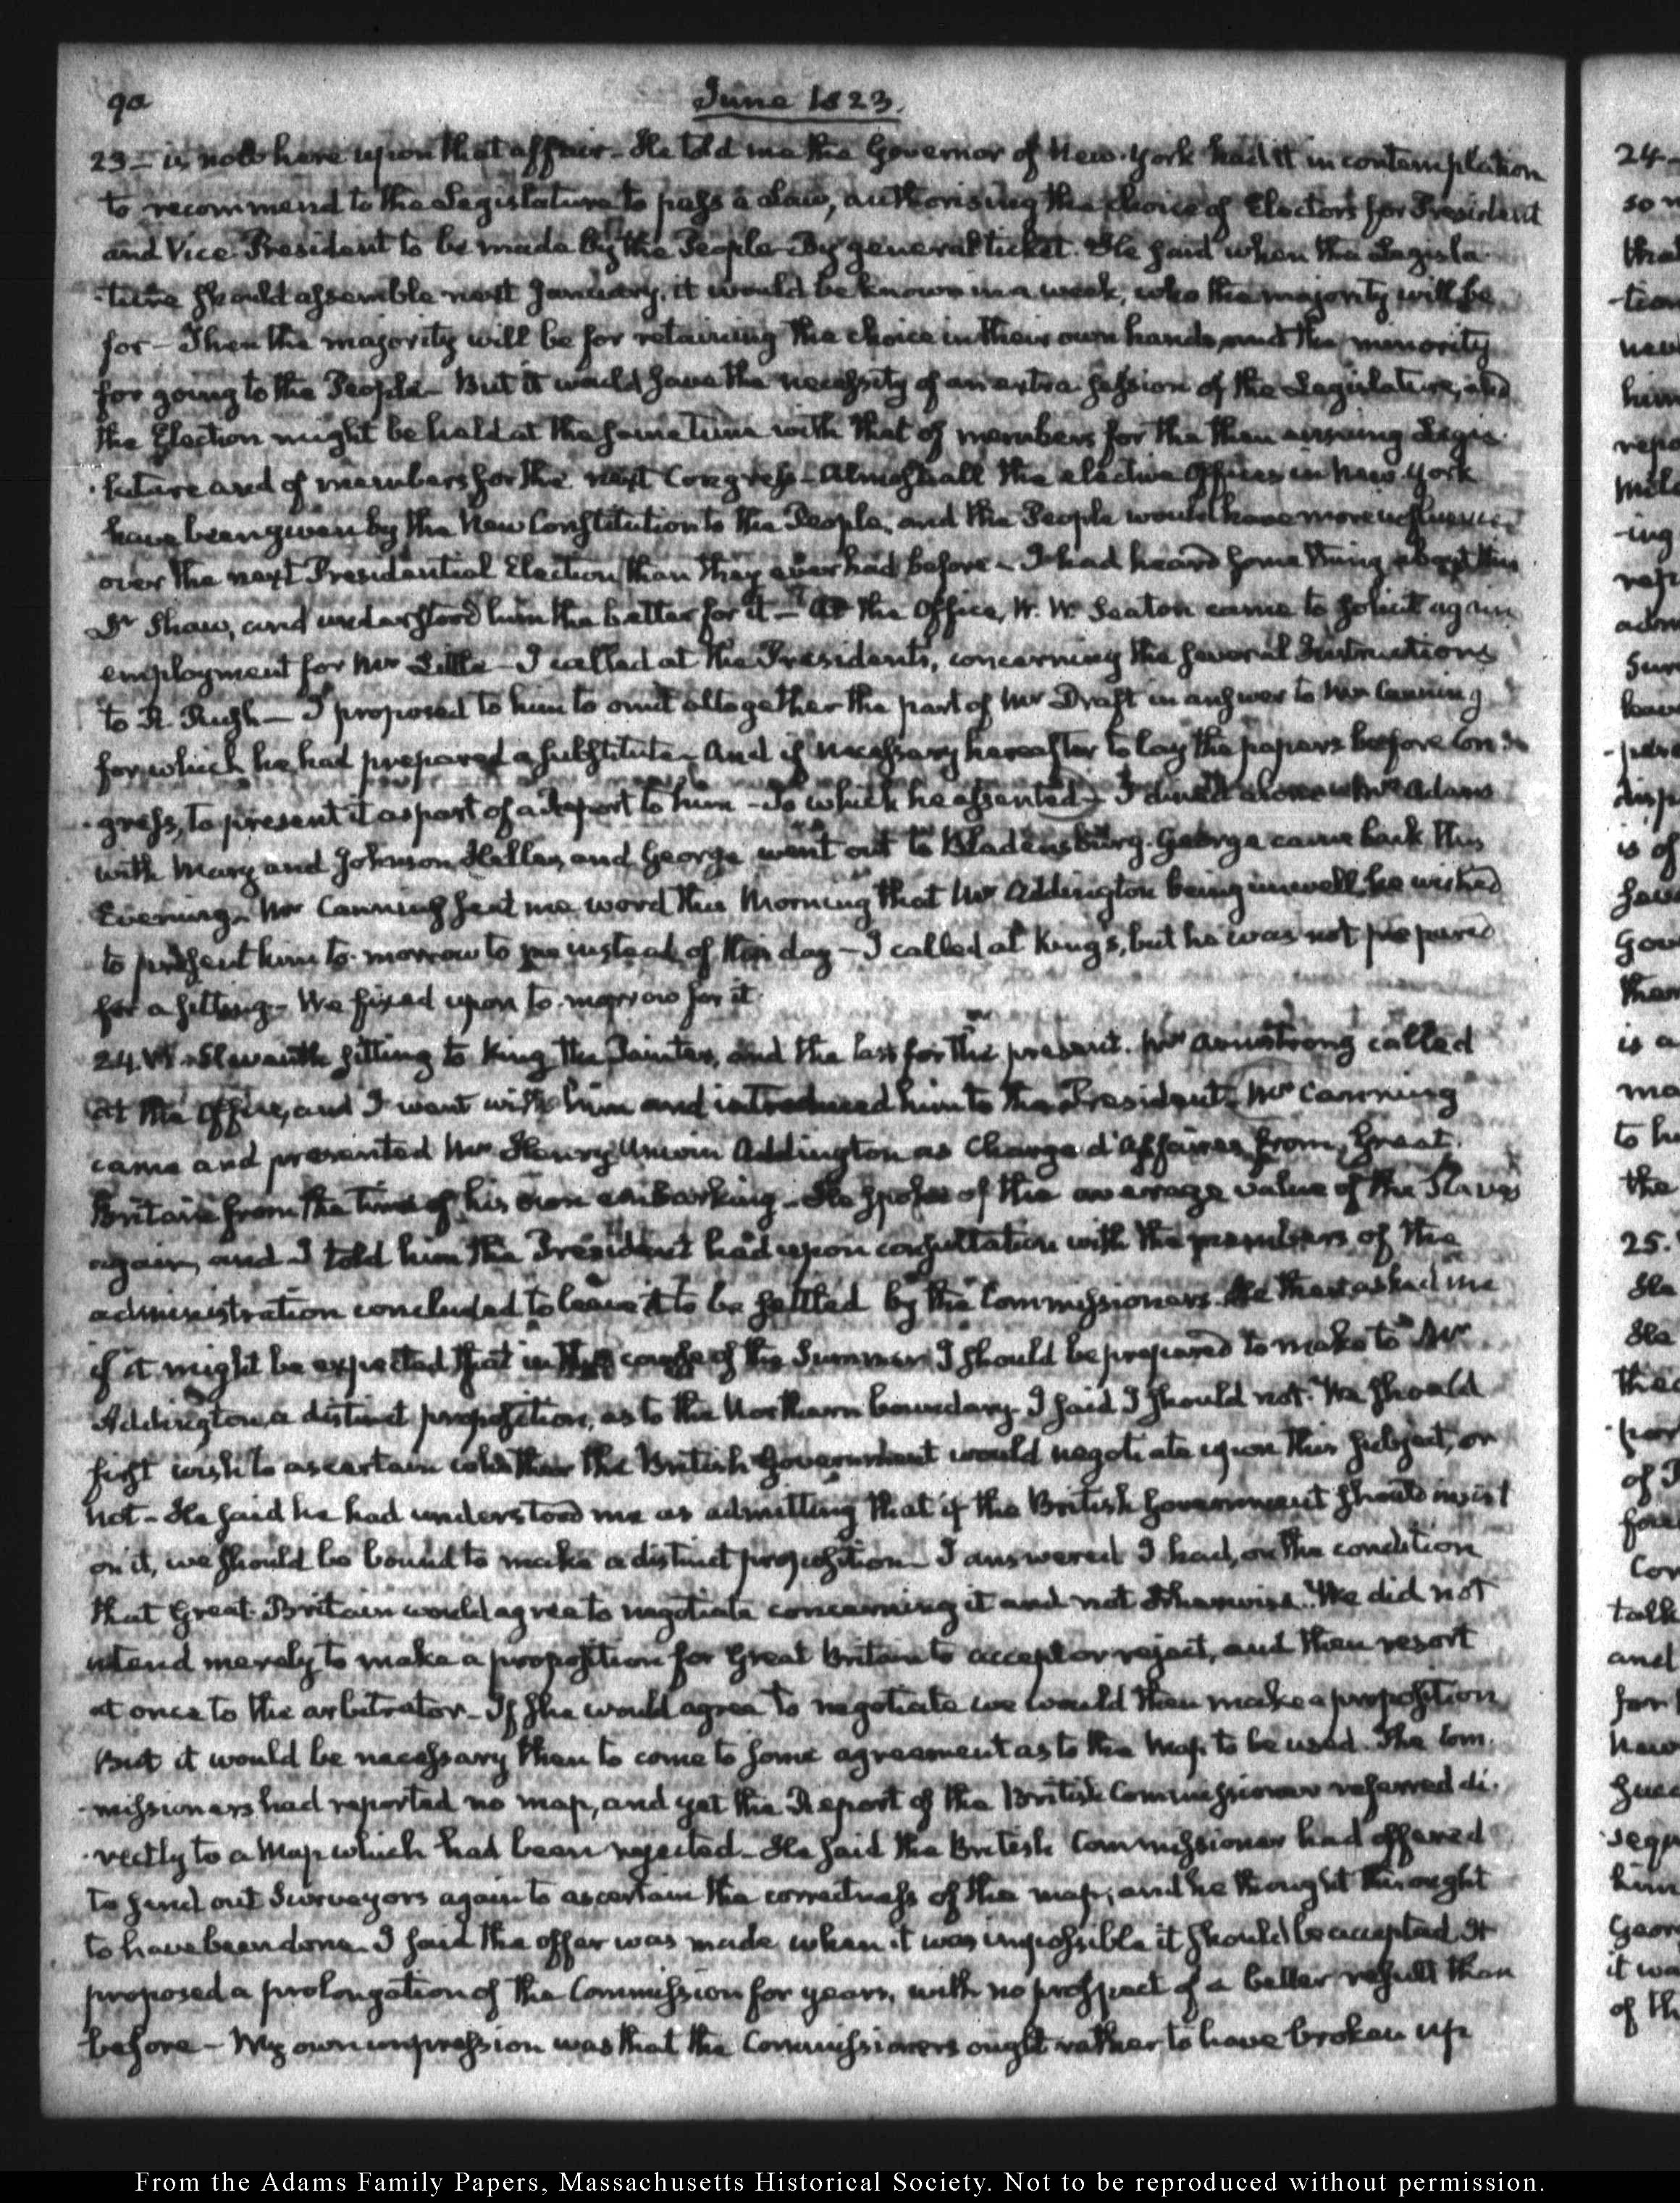 90
June 1823.
23 - is now here upon that affair - He told me the Governor of New-York had it in contemplation
to recommend to the Legislature to pass a Law, authorising the choice of Electors for President
and Vice President to be made by the People By general ticket. He said when the Legisla-
-ture should assemble next January, it would be known in a week, who the majority will be
for - Then the majority will be for retaining the choice in their own hands, and the minority
for going to the People - But it would save the necessity of an extra session of the Legislature, and
the Election might be held at the same time with that of members for the then ensuing Legis-
-lature and of members for the next Congress - Almost all the elective Offices in New-York
have been given by the New Constitution to the People, and the People would have more influence
over the next Presidential Election than they ever had before - I had heard something about this
Dr Shaw, and understood him the better for it - At the Office, W. W. Seaton came to solicit again
employment for Mr Little - I called at the President's, concerning the several Instructions
to R. Rush - I proposed to him to omit altogether the part of my Draft in answer to Mr Canning
for which he had prepared a substitute - And if necessary hereafter to lay the papers before Con-
-gress, to present it as part of a Report to him - To which he assented - I dined alone. Mrs Adams
with Mary and Johnson Hellen, and George went out to Bladensburg. George came back this
Evening. Mr Canning sent me word this Morning that Mr Addington being unwell, he wished
to present him to-morrow to me instead of this day - I called at King's, but he was not prepared
for a sitting - We fixed upon to-morrow for it.
24. VI. Eleventh sitting to King the Painter, and the last for the present. Mr Armstrong called
at the Office, and I went with him and introduced him to the President. Mr Canning
came and presented Mr Henry Unwin Addington as Chargé d'Affaires from Great
Britain from the time of his own embarking - He spoke of the average value of the Slaves
again, and I told him the President had upon consultation with the members of the
administration concluded to leave it to be settled by the Commissioners. He then asked me
if it might be expected that in the course of the Summer I should be prepared to make to Mr
Addington, a distinct proposition, as to the Northern boundary. I said I should not. We should
first wish to ascertain whether the British Government would negotiate upon this subject, or
not - He said he had understood me as admitting that if the British Government should insist
on it, we should be bound to make a distinct proposition - I answered I had, on the condition
that Great-Britain would agree to negotiate concerning it and not otherwise. We did not
intend merely to make a proposition for Great Britain to accept or reject, and then resort
at once to the arbitrator - If she would agree to negotiate we would then make a proposition
But it would be necessary then to come to some agreement as to the Map to be used. The Com-
-missioners had reported no map, and yet the Report of the British Commissioner referred di-
-rectly to a Map which had been rejected - He said the British Commissioner had offered
to send out Surveyors again to ascertain the correctness of the map; and he thought this ought
to have been done. I said the offer was made when it was impossible it should be accepted It
proposed a prolongation of the Commission for years, with no prospect of a better result than
before - My own impression was that the Commissioners ought rather to have broken up
24
25.
From the Adams Family Papers, Massachusetts Historical Society. Not to be reproduced without permission.